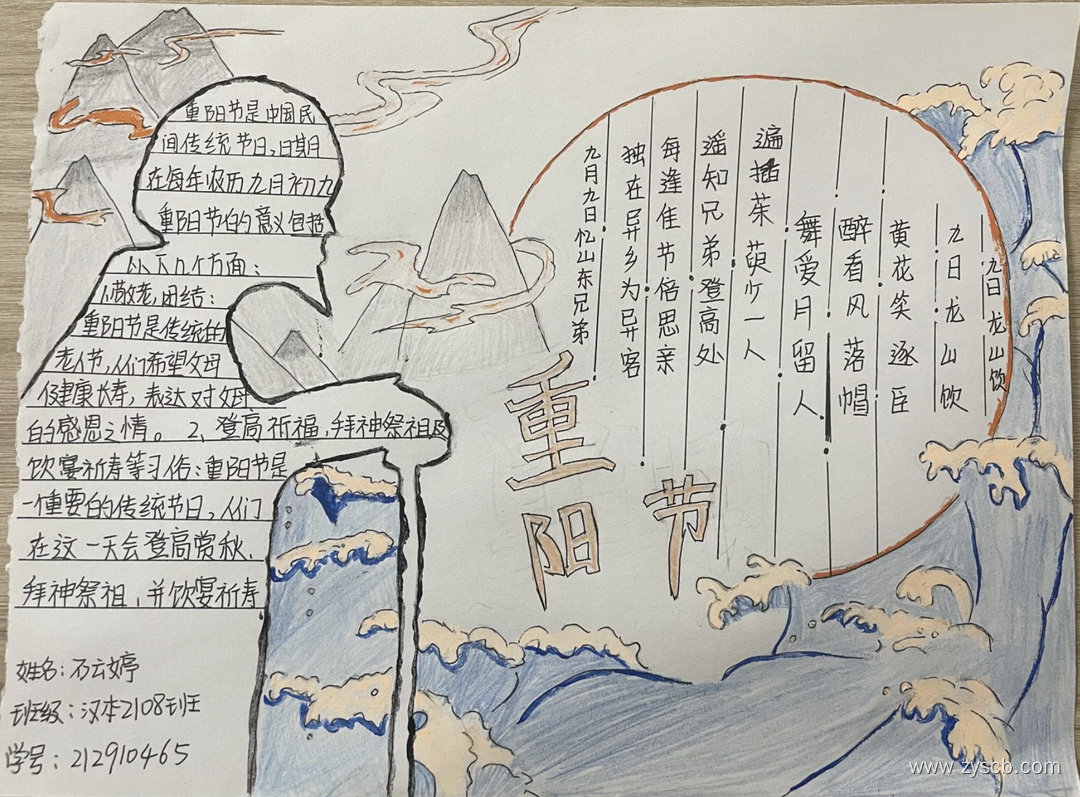 重阳节是中国民
间传统节日,日期
在每年农历九月初九
重阳节的意义包括
以下几个方面:
1敬老,团结:
重阳节是传统的
老人节,人们希望父母
健康长寿,表达对父母
的感恩之情。2、登高祈福,拜神祭祖及
饮宴祈寿等习俗:重阳节是
一个重要的传统节日,人们
在这一天会登高赏秋、
拜神祭祖,并饮宴祈寿
姓名:石云婷
班级:汉本2108班
学号:212910465
重阳节
九月九日忆山东兄弟
独在异乡为异客
每逢佳节倍思亲
遥知兄弟登高处
遍插茱萸少一人
九日龙山饮
九日龙山饮
黄花笑逐臣
醉看风落帽
舞爱月留人
www.zyscb.com